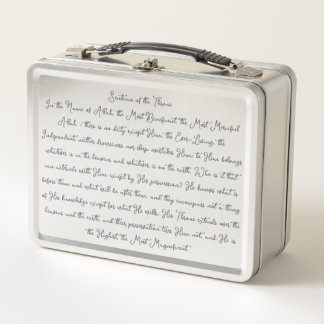 Sentence of the Throne
In the Name of Allah, the Most Beneficent, the Most Merciful
Allah - there is no deity except Him, the Ever-Living, the
Independent, neither drowsiness nor sleep overtakes Him, to Him belongs
whatever is in the heavens and whatever is on the earth. Who is it that
can intercede with Him except by His permission? He knows what is
before them and what will be after them, and they encompass not a thing
of His knowledge except for what He wills. His Throne extends over the
heavens and the earth, and their preservation tires Him not, and He is
the Highest, the Most Magnificent